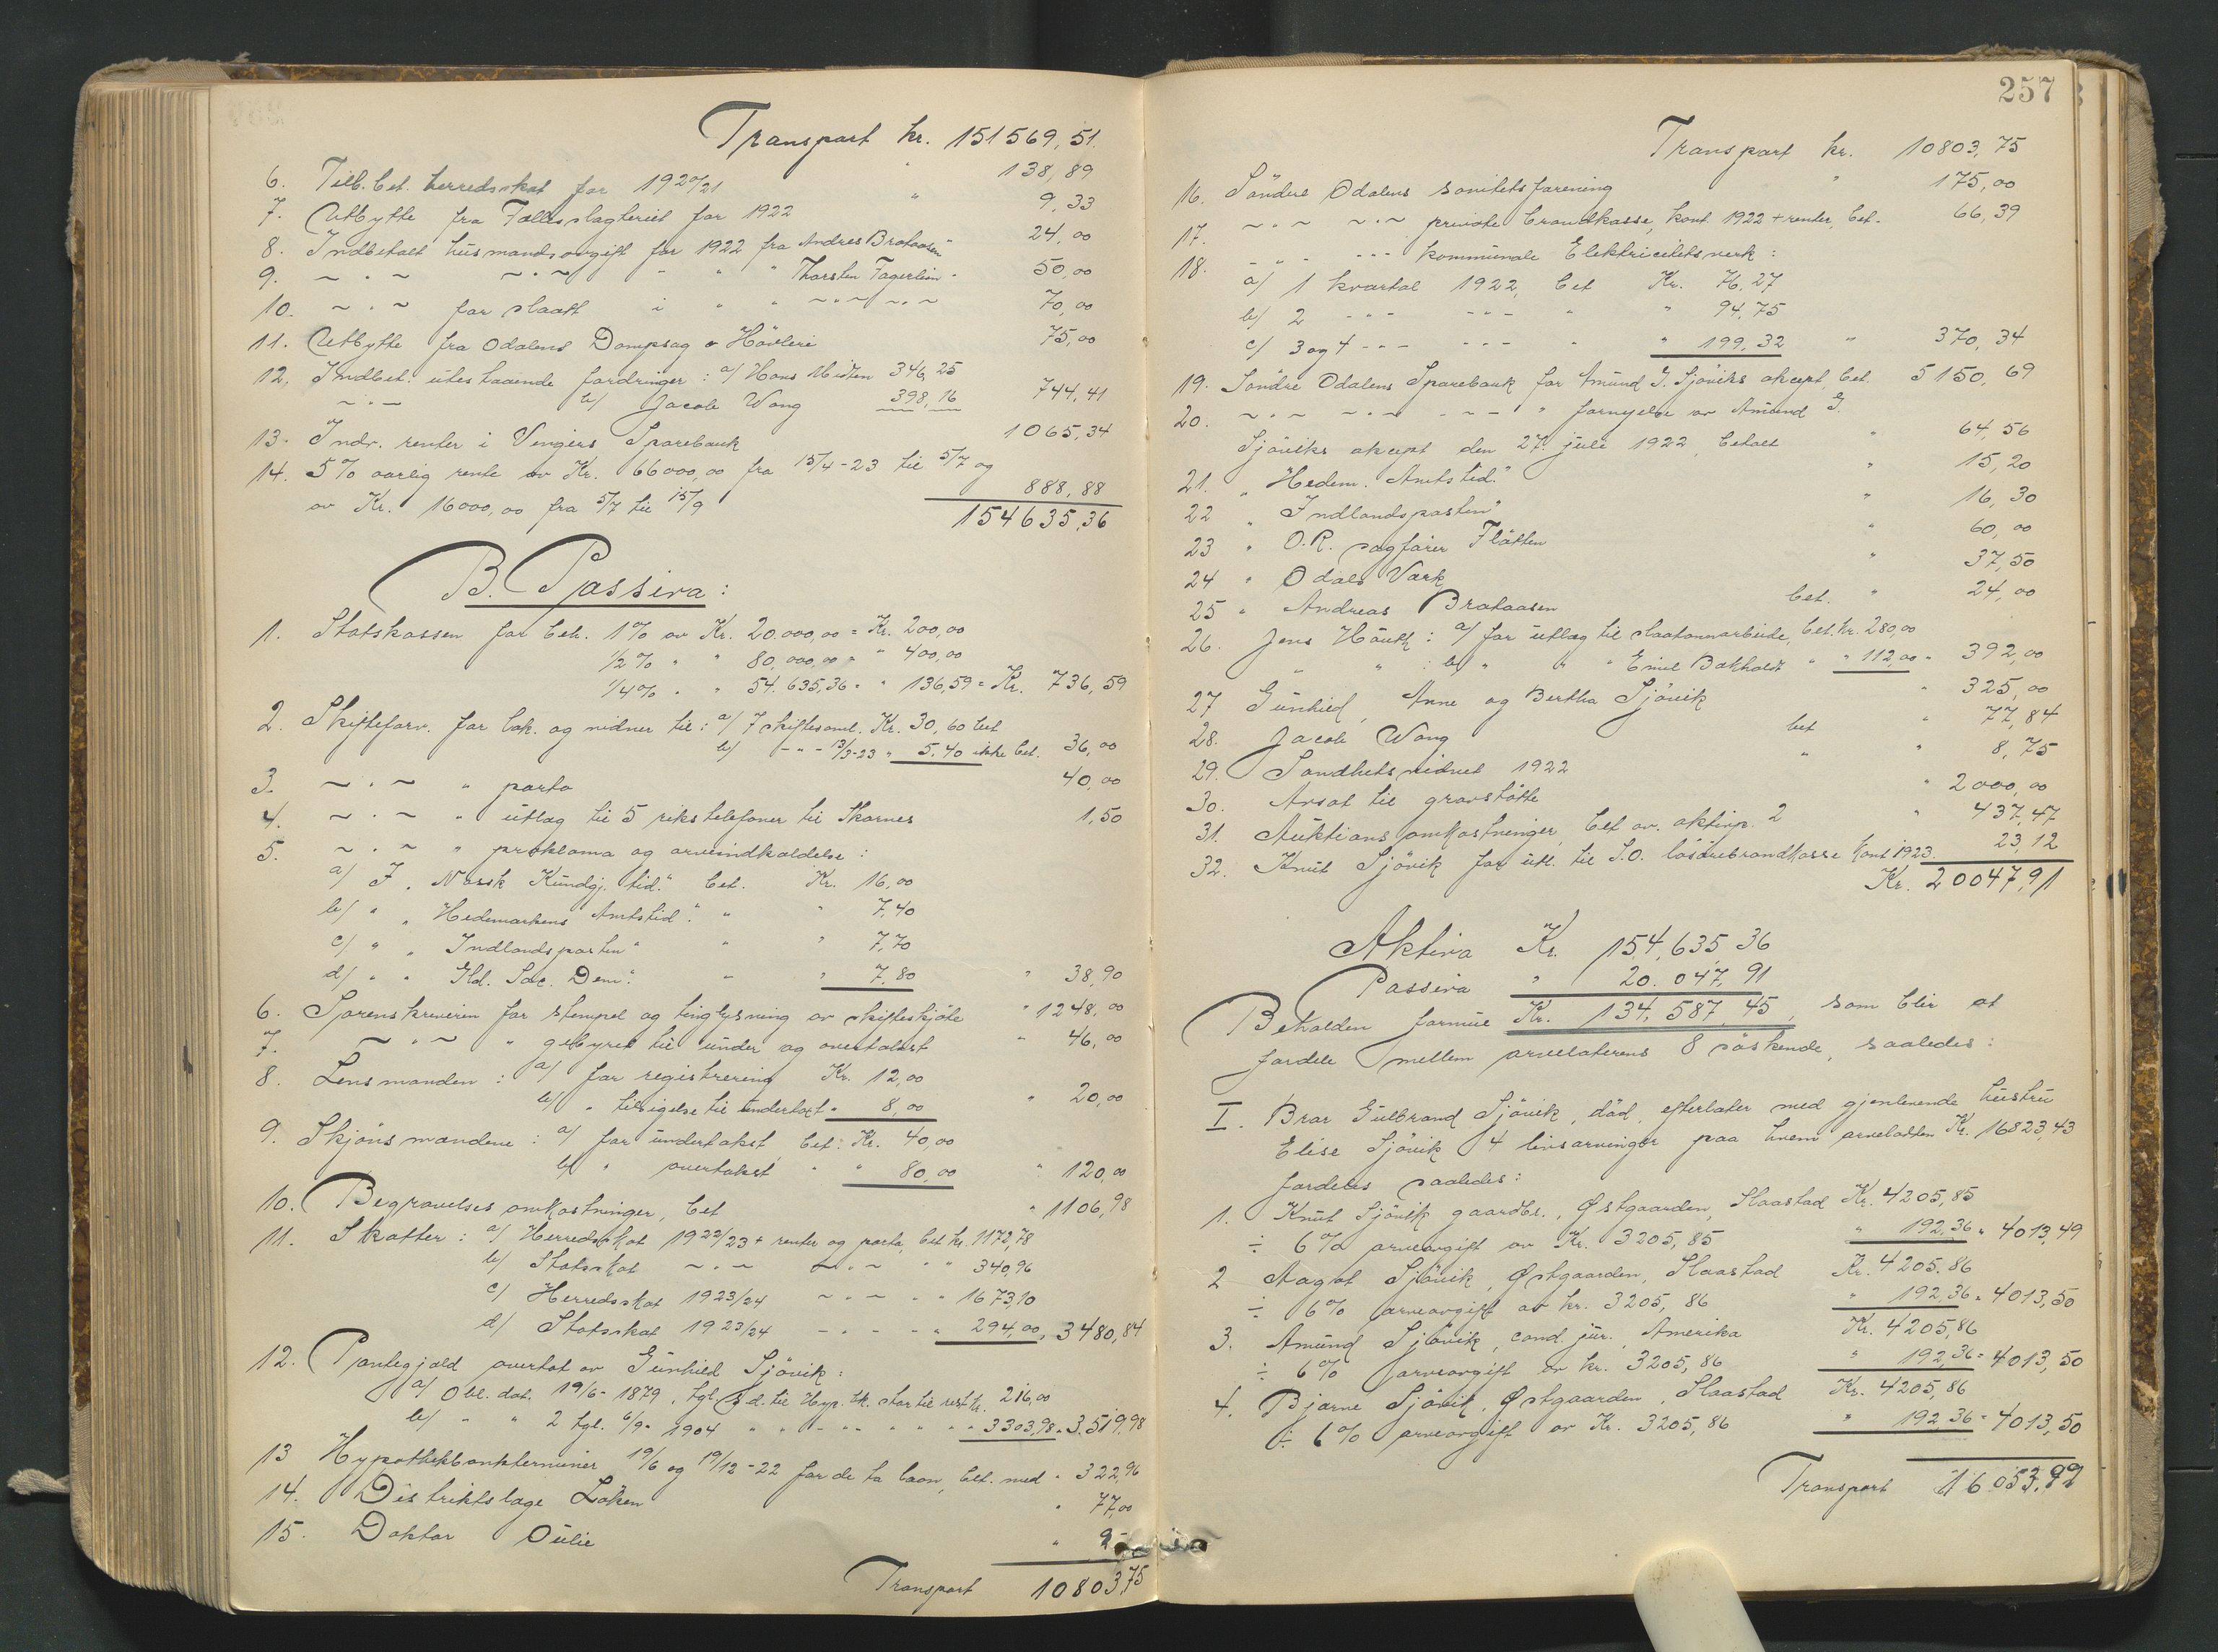 Transport kr. 151569,51.
6. Tilb. bet. herredsskat for 1920/21 " 138,89
7. Utbytte fra Fællesslagteriet for 1922 " 9,33
8. Indbetalt husmandsavgift for 1922 fra Andreas Brataasen 24,00
9. ~ " ~ ~ " ~ - " " Thorsten Fagerlien - 50,00
10. ~ " ~ for slaatt i " " ~ " ~ " ~ 70,00
11. Utbytte fra Odalens Dampsag & Høvleri 75,00
12. Indbet. utestaaende fordringer: a/ Hans Midten 346,25
~ " ~ b/ Jacob Wang 398,16 744,41
13. Indv. renter i Vingers Sparebank 1065,34
14. 5% aarlig rente av Kr. 66000,00 fra 15/4-23 til 5/7 og
av Kr. 16000,00 fra 5/7 til 15/9 888,88
154635,36
B. Passiva:
1. Statskassen for beh. 1% av Kr. 20.000,00 = Kr. 200,00
1/2% " " 80.000,00 = " 400,00
1/4% " " 54.635,36 = " 136,59 = Kr. 736,59
2. Skifteforv. for bok. og vidner til: a/ 7 skiftesaml. Kr. 30,60 bet
b/ - " - 13/3-23 " 5.40 ikke bet. 36,00
3. ~ " ~ " porto 40,00
4. ~ " ~ " utlæg til 5 rikstelefoner til Skarnes 1,50
5. ~ " ~ " proklama og arveindkaldelse:
a/ I "Norsk Kundgj. tid." bet. Kr. 16,00
b/ " "Hedemarkens Amtstid." " " 7,40
c/ " "Indlandsposten" " " 7,70
d/ " " Soc. Dem." " " 7,80 " 38,90
6. Sorenskriveren for stempel og tinglysning av skifteskjøte " 1248,00
7. ~ " ~ " gebyrer til under og overtakst " 46,00
8. Lensmanden: a/ for registrering Kr. 12,00
b/ " tilsigelse til undertakst " 8,00 " 20,00
9. Skjønsmændene: a/ for undertakst, bet: Kr. 40,00
b/ " overtakst " " 80,00 " 120,00
10. Begravelsesomkostninger, bet " 1106,98
11. Skatter: a/ Herredsskat 1922/23 + renter og porto, bet kr. 1172,78
b/ Statsskat ~ " ~ ~ " ~ " " 340,96
c/ Herredsskat 1923/24 ~ " ~ " " 1673,10
d/ Statsskat 1923/24 - " - " " 294,00 " 3480,84
12. Pantegjæld overtat av Gunhild Sjøvik:
a/ Obl. dat. 19/6-1879, tgl. s. d. til Hyp. bk. stor til rest kr. 216,00
b/ " " 2 tgl. 6/9-1904 " " - " - " " " 3303,98 " 3.519,98
13 Hypothekbankterminer 19/6 og 19/12-22 for de to laan, bet. med " 322,96
14. Distriktslæge Løken " 77,00
15. Doktor Oulie " 9-
Transport 10803,75
257
Transport kr. 10803,75
16. Søndre Odalens sanitetsforening " 175,00
17. ~ " ~ ~ " ~ private brandkasse, kont. 1922 + renter, bet. 66,39
18. - " - - " - kommunale Elektricitetsverk:
a/ 1 kvartal 1922, bet Kr. 76,27
b/ 2 - " - - " - " " 94,75
c/ 3 og 4 - " - - " - " " 199,32 " 370,34
19. Søndre Odalens Sparebank for Amund G. Sjøviks aksept, bet. 5150,69
20. ~ " ~ ~ " ~ - " - " fornyelse av Amund G.
Sjøviks aksept den 27. juli 1922, betalt " 64,56
21. "Hedem. Amtstid." " 15,20
22 "Indlandsposten" " 16,30
23 " O.R. sagfører Fløtten " 60,00
24 " Odals Værk " 37,50
25 " Andreas Brataasen bet. " 24,00
26. Jens Haugh: a/ for utlæg til slaatonnarbeide, bet. kr. 280,00
" " : b/ " " " Emil Bakholdt " " 112,00 " 392,00
27 Gunhild, Anne og Bertha Sjøvik " 325,00
28. Jacob Wang bet " 77,84
29. Sandhetsvidnet 1922 " " 8,75
30. Avsat til gravstøtte " 2000,00
31. Auktionsomkostninger, bet av. aktivp. 2 " 437,47
32. Knut Sjøvik for utl. til S.O. løsørebrandkasse kont 1923. 23,12
Kr. 20047,91
Aktiva Kr. 154,635,36
Passiva " 20.047,91
Beholden formue Kr. 134,587,45, som blir at
fordele mellem arvelaterens 8 søskende, saaledes:
I. Bror Gulbrand Sjøvik, død, efterlater med gjenlevende hustru
Elise Sjøvik 4 livsarvinger paa hvem arvelodden Kr. 16823,43
fordeles saaledes:
1. Knut Sjøvik gaardbr., Østgaarden, Slaastad Kr. 4205,85
÷ 6% arveavgift av Kr. 3205,85 " 192,36 " 4013,49
2 Aagot Sjøvik, Østgaarden, Slaastad Kr. 4205.86
÷ 6% arveavgift av kr. 3205,86 " 192,36 " 4013,50
3. Amund Sjøvik, cand. jur., Amerika Kr. 4205,86
÷ 6% arveavgift av kr. 3205,86 " 192,36 = 4013,50
4. Bjarne Sjøvik, Østgaarden, Slaastad Kr. 4205,86
÷ 6% arveavgift av Kr. 3205,86 " 192,36 = 4013,50
Transport 16053,99